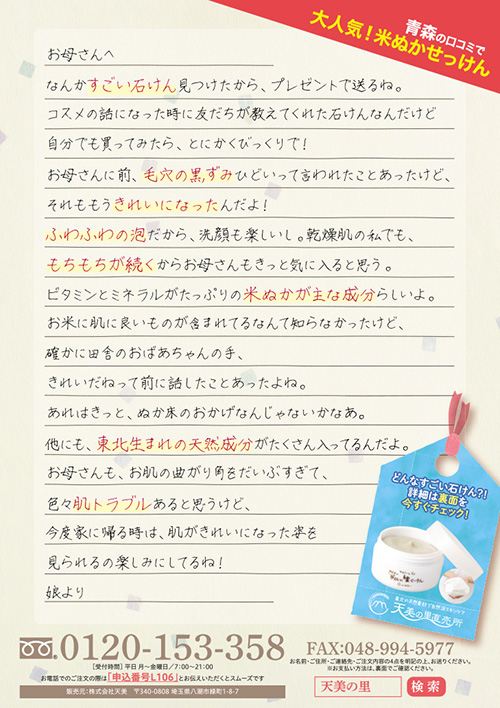 青森の口コミで
大人気!米ぬかせっけん
お母さんへ
なんかすごい石けん見つけたから、プレゼントで送るね。
コスメの話になった時に友だちが教えてくれた石けんなんだけど
自分でも買ってみたら、とにかくびっくりで!
お母さんに前、毛穴の黒ずみひどいって言われたことあったけど、
それももうきれいになったんだよ!
ふわふわの泡だから、洗顔も楽しいし。乾燥肌の私でも、
もちもちが続くからお母さんもきっと気に入ると思う。
ビタミンとミネラルがたっぷりの米ぬかが主な成分らしいよ。
お米に肌に良いものが含まれてるなんて知らなかったけど、
確かに田舎のおばあちゃんの手、
きれいだねって前に話したことあったよね。
あれはきっと、ぬか床のおかげなんじゃないかなあ。
他にも、東北生まれの天然成分がたくさん入ってるんだよ。
お母さんも、お肌の曲がり角をだいぶすぎて、
色々肌トラブルあると思うけど、
今度家に帰る時は、肌がきれいになった姿を
見られるの楽しみにしてるね!
娘より
どんなすごい石けん?!
詳細は裏面を
今すぐチェック!
天美の里直売所
0120-153-358
[受付時間]平日 月〜金曜日/7:00〜21:00
お電話でのご注文の際は「申込番号L106」とお伝えいただくとスムーズです
販売元:株式会社天美 〒340-0808 埼玉県八潮市緑町1-8-7
FAX:048-994-5977
お名前・ご住所・ご連絡先・ご注文内容の4点を明記の上、お送りください。
※お支払い方法は、裏面をご確認ください。
天美の里 検索